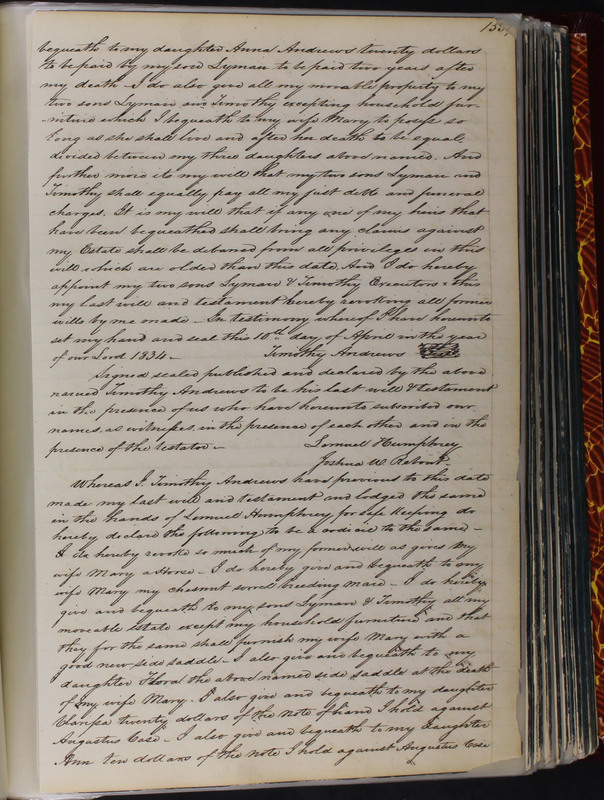 bequeath to my daughter Anna Andrews twenty dollars
to be paid by my son Lyman to be paid two years after
my death - I do also give all my movable property to my
two sons Lyman and Timothy excepting household fur-
-niture which I bequeath to my wife Mary to posess so
long as she shall live and after her death to be equal
divided between my three daughters above named. And
further more its my will that my two sons Lyman and
Timothy shall equally pay all my just debts and funeral
charges. It is my will that if any one of my heirs that
have been bequeathed shall bring any claims against
my Estate shall be debarred from all privileges in this
will which are older than this date. And I do hereby
appoint my two sons Lyman & Timothy Executors this
my last will and testament hereby revokking all former
wills by me made - In testimony whereof I have hereunto
set my hand and seal this 10th day of April in the year
of our Lord 1834 - Timothy Andrews
Signed sealed published and declared by the above
named Timothy Andrews to be his last will & testament
in the presence of us who have hereunto subscribed our
names as witnesses in the presence of each other and in the
presence of the testator - Lemuel Humphrey
Joshua W.
Whereas I Timothy Andrews have previous to this date
made my last will and testament and lodged the same
in the hands of Lemuel Humphrey for safe keeping do
hereby declare the following to be a codicil to the same -
I do hereby revoke so much of my former will as gives my
wife Mary a Horse - I do hereby give and bequeath to my
wife Mary my chesnut sorrel breeding mare - I do hereby
give and bequeath to my sons Lyman & Timothy all my
moveable Estate except my household furniture and that
they for the same shall furnish my wife Mary with a
good new side saddle - I also give and bequeath to my
daughter the above named side saddle at the death
of my wife Mary. I also give and bequeath to my daughter
twenty dollars of the note of hand I hold against
Augustus Case - I also give and bequeath to my daughter
Ann ten dollars of the note I hold against Augustus Case